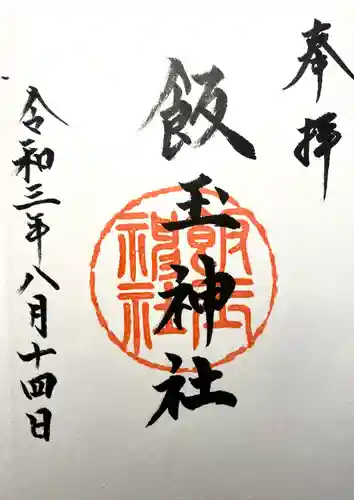 奉拝
飯玉神社
令和三年八月十四日